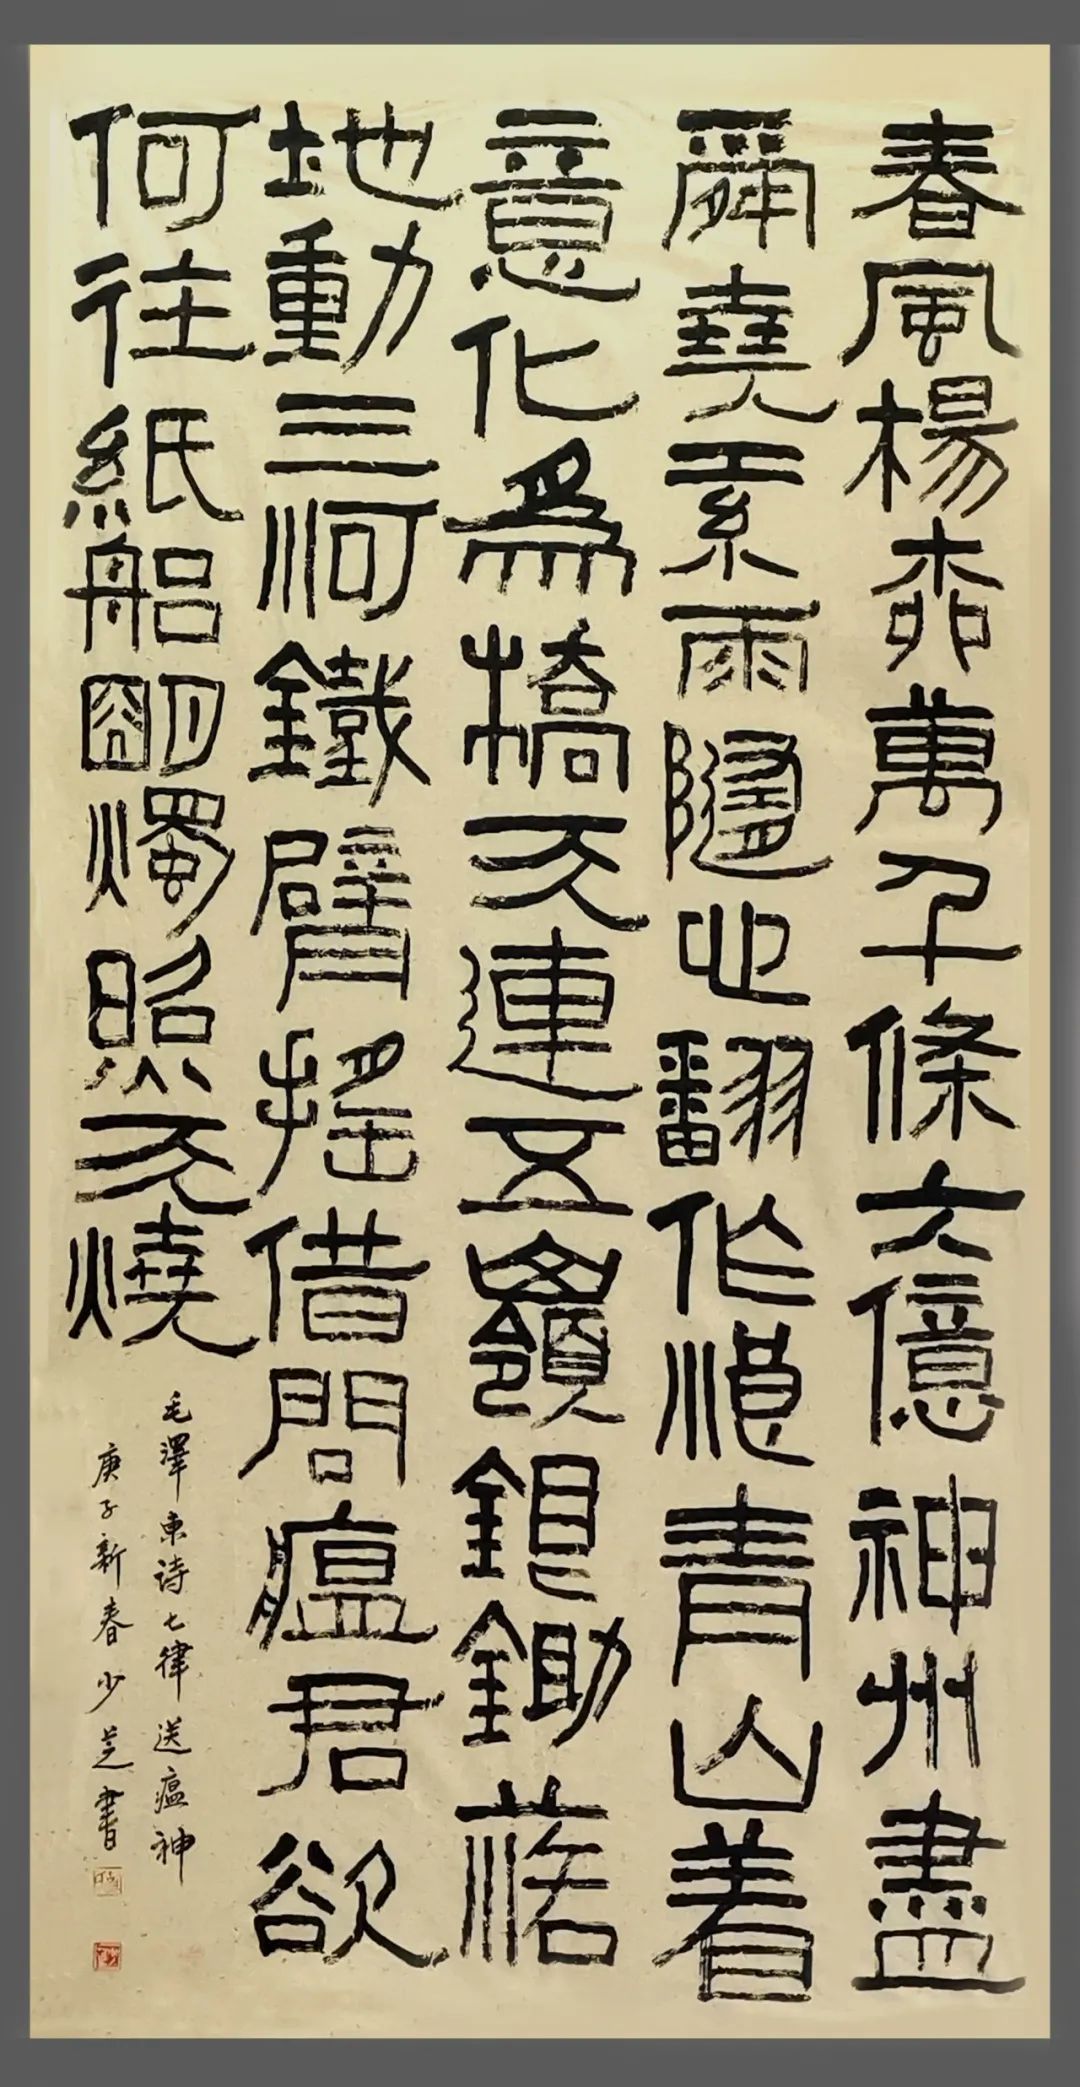 春風楊柳萬千條六億神州盡
舜堯紅雨隨心翻作浪青山着
意化爲橋天連五嶺銀鋤落
地動三河鐵臂搖借問瘟君欲
何往紙船明燭照天燒
毛澤東诗七律送瘟神
庚子新春少芝書